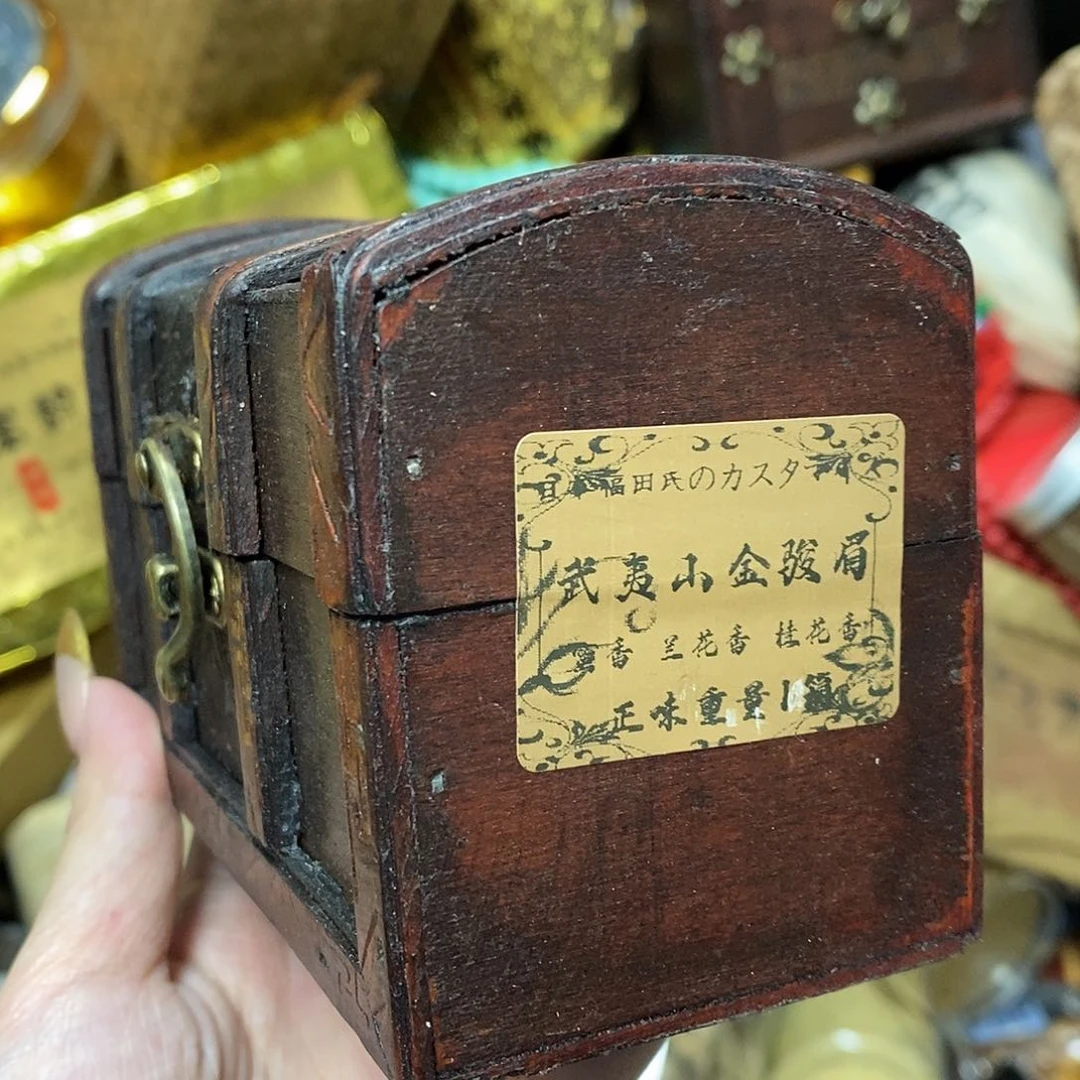 福田氏のカスタ
武夷小金骏眉
香 兰花香 桂花香
正味重量